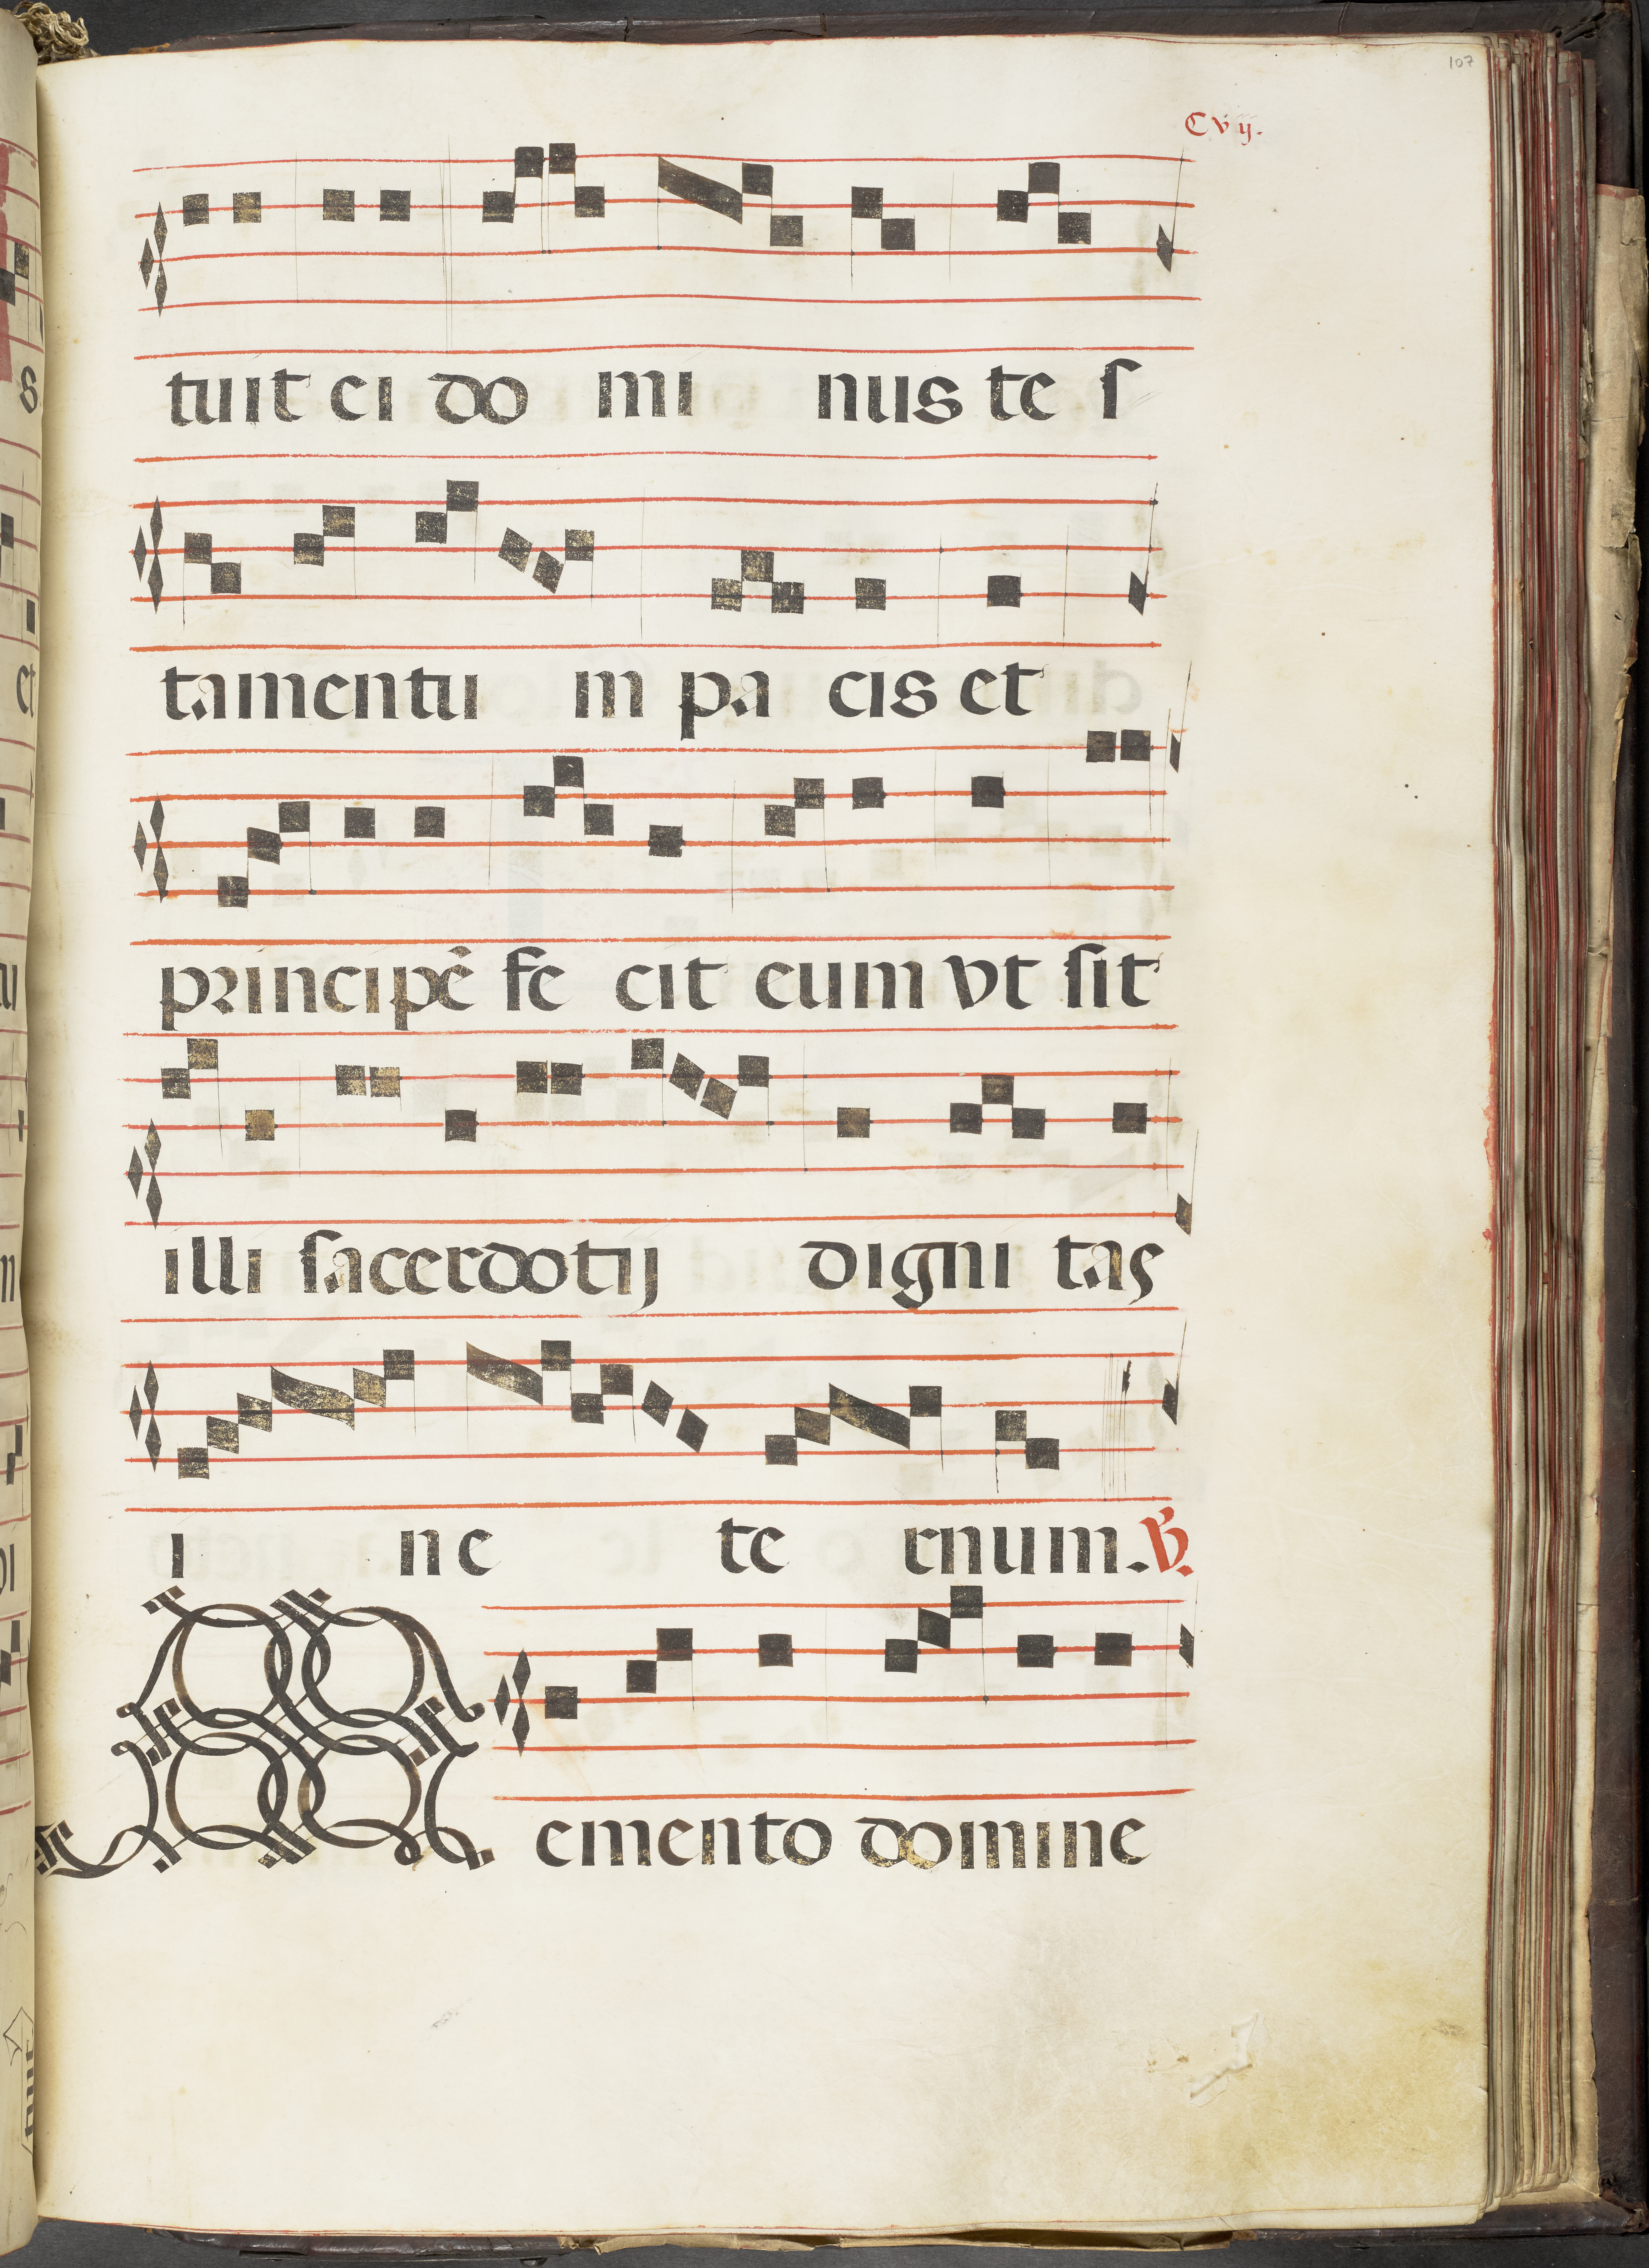 107
C vij.
tuit ei do mi nus te s
tamentu m pa cis et
principē fe cit eum vt sit
illi sacerdotij digni tas
i ne te rnum. V.
Memento domine